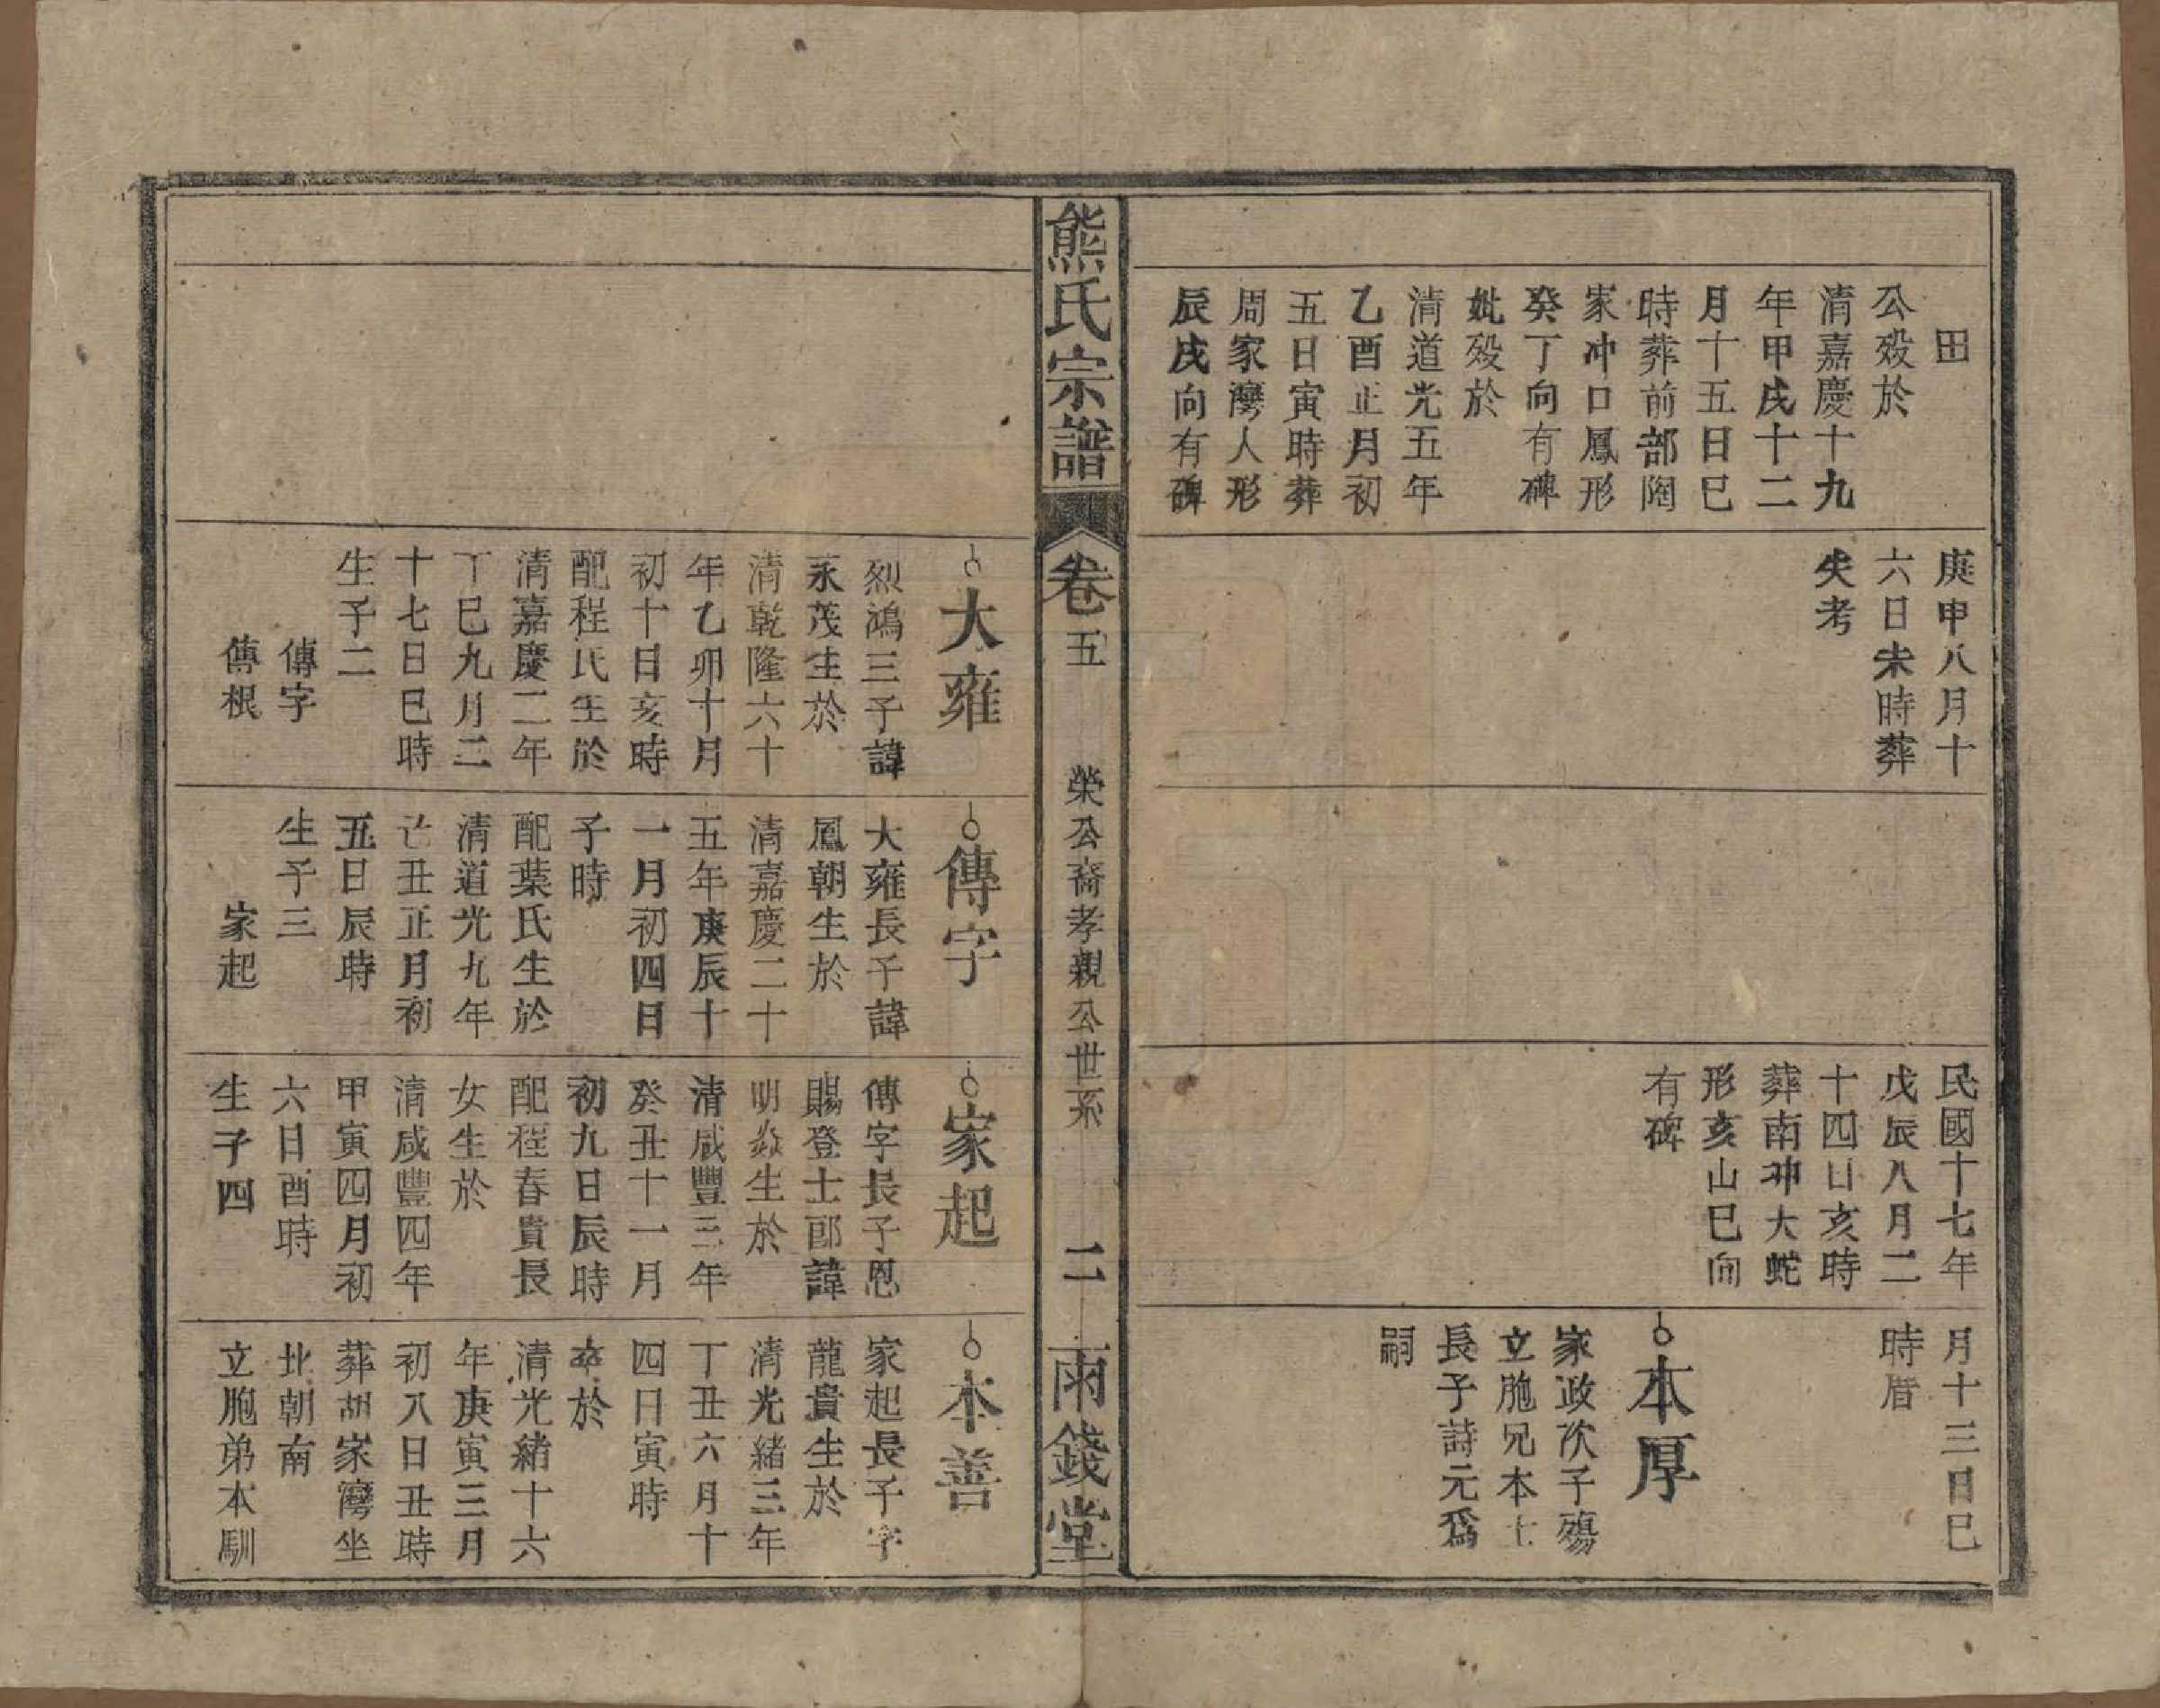 田
公歿於
清嘉慶十九
年甲戌十二
月十五日巳
時葬前部陶
家冲口鳳形
癸丁向有碑
妣歿於
清道光五年
乙酉正月初
五日寅時葬
周家灣人形
辰戌向有碑
庚申八月十
六日未時葬
失考
民國十七年
戊辰八月二
十四日亥時
葬南冲大蛇
形亥山巳向
有碑
月十三日巳
時厝
本厚
家政次子殤
立胞兄本士
長子詩元爲
嗣
熊氏宗譜
卷五
榮公裔孝親公世系
二
雨錢堂
大雍
烈鴻三子諱
永茂生於
清乾隆六十
年乙卯十月
初十日亥時
配程氏生於
清嘉慶二年
丁巳九月二
十七日巳時
生子二
傳字
傳根
傳字
大雍長子諱
鳳朝生於
清嘉慶二十
五年庚辰十
一月初四日
子時
配葉氏生於
清道光九年
己丑正月初
五日辰時
生子三
家起
家起
傳字長子恩
賜登士郎諱
明焱生於
清咸豐三年
癸丑十一月
初九日辰時
配程春貴長
女生於
清咸豐四年
甲寅四月初
六日酉時
生子四
本善
家起長子字
龍貴生於
清光緒三年
丁丑六月十
四日寅時
卒於
清光緒十六
年庚寅三月
初八日丑時
葬胡家灣坐
北朝南
立胞弟本馴